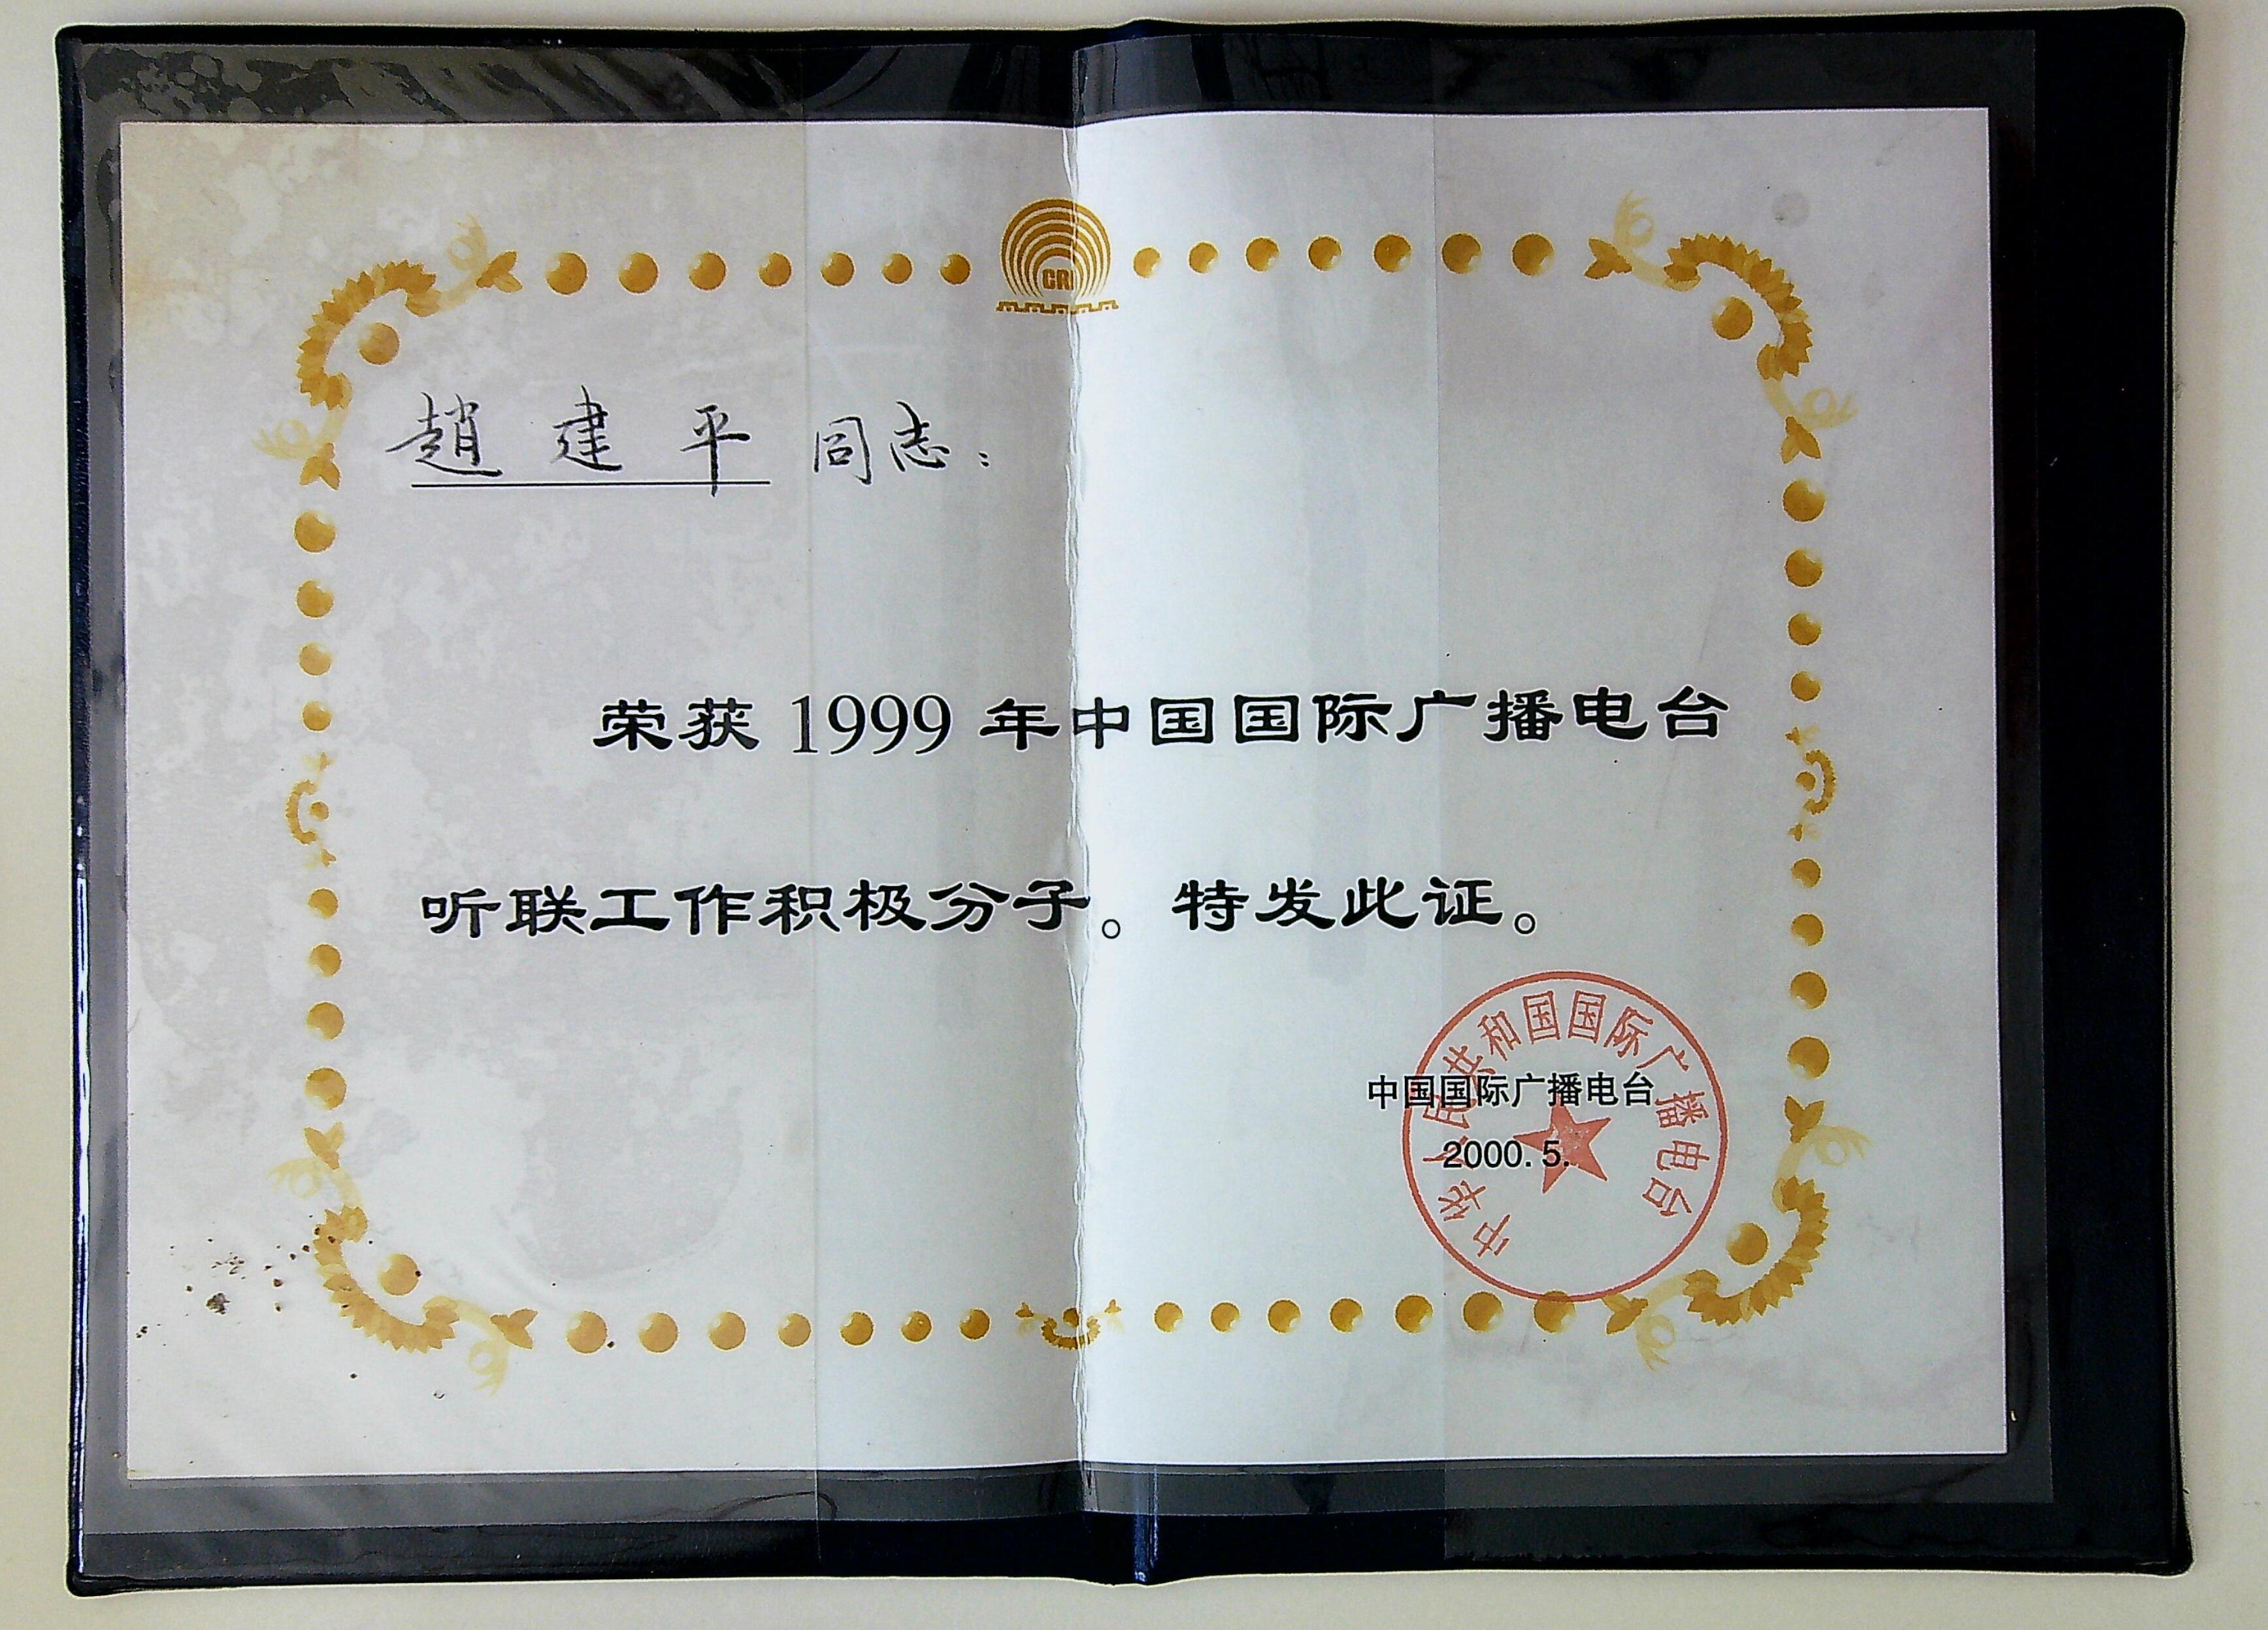 CRI
趙建平 同志：
荣获 1999 年中国国际广播电台
听联工作积极分子。特发此证。
中国国际广播电台
2000.5.
中华人民共和国国际广播电台